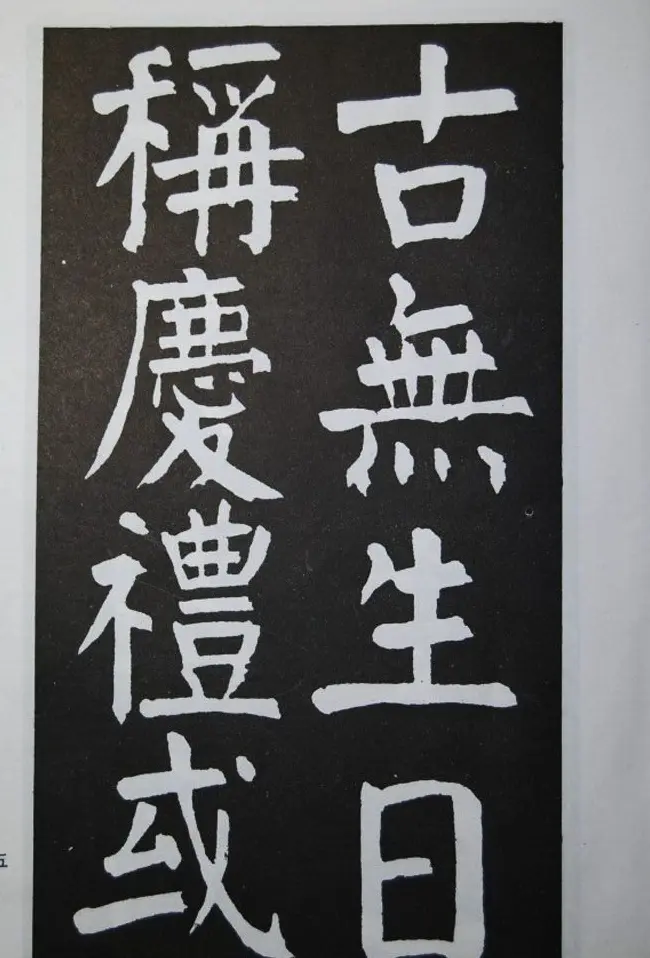 古無生日
稱慶禮或
五